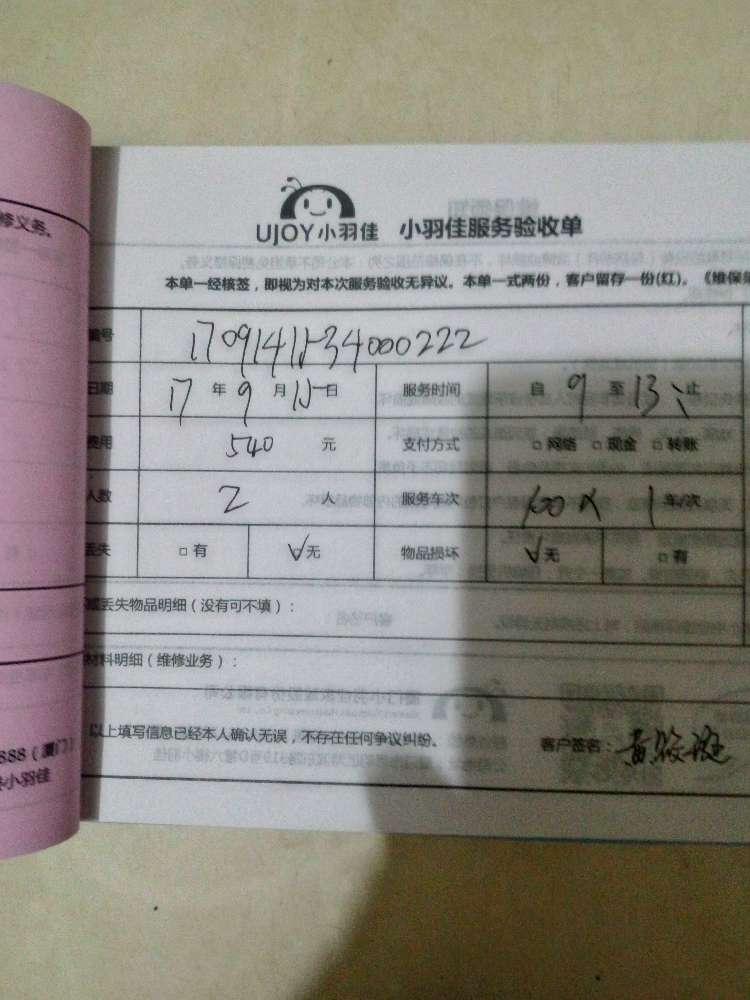 修义务。
UJOY小羽佳 小羽佳服务验收单
本单一经核签，即视为对本次服务验收无异议。本单一式两份，客户留存一份(红)。《维保
编号 17091411534000222
日期 17 年 9 月 15 日 服务时间 自 9 至 13 止
费用 540 元 支付方式 □ 网络 □ 现金 □ 转账
人数 2 人 服务车次 1 车/次
丢失 □ 有 ☑ 无 物品损坏 ☑ 无 □ 有
或丢失物品明细（没有可不填）：
材料明细（维修业务）：
以上填写信息已经本人确认无误，不存在任何争议纠纷。 客户签名：
888（厦门）
小羽佳